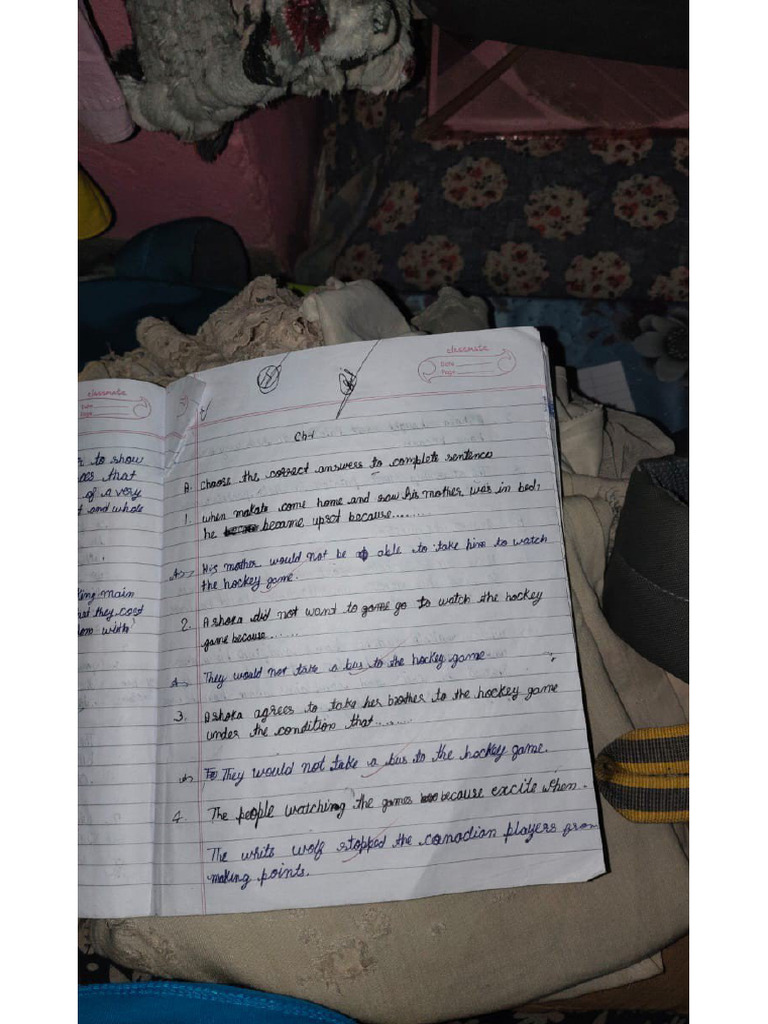 classmate
Date
Page
classmate
Date
Page
to show
that
of a very
and whole
main
they cost
with
Ch-1
A. Choose the correct answers to complete sentence
1. When makate come home and saw his mother was in bed,
he became upset because........
A:-> His mother would not be able to take him to watch
the hockey game.
2. Ashoka did not want to game go to watch the hockey
game because.......
A-> They would not take a bus to the hockey game
3. Ashoka agrees to take her brother to the hockey game
under the condition that........
A-> They would not take a bus to the hockey game.
4. The people watching the games because excite when.
The white wolf stopped the Canadian players from
making points.